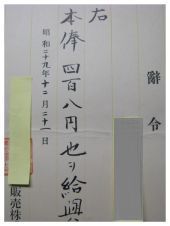 辭令
右
本俸四百八円也ヲ給與
昭和二十九年十二月二十一日
販売株